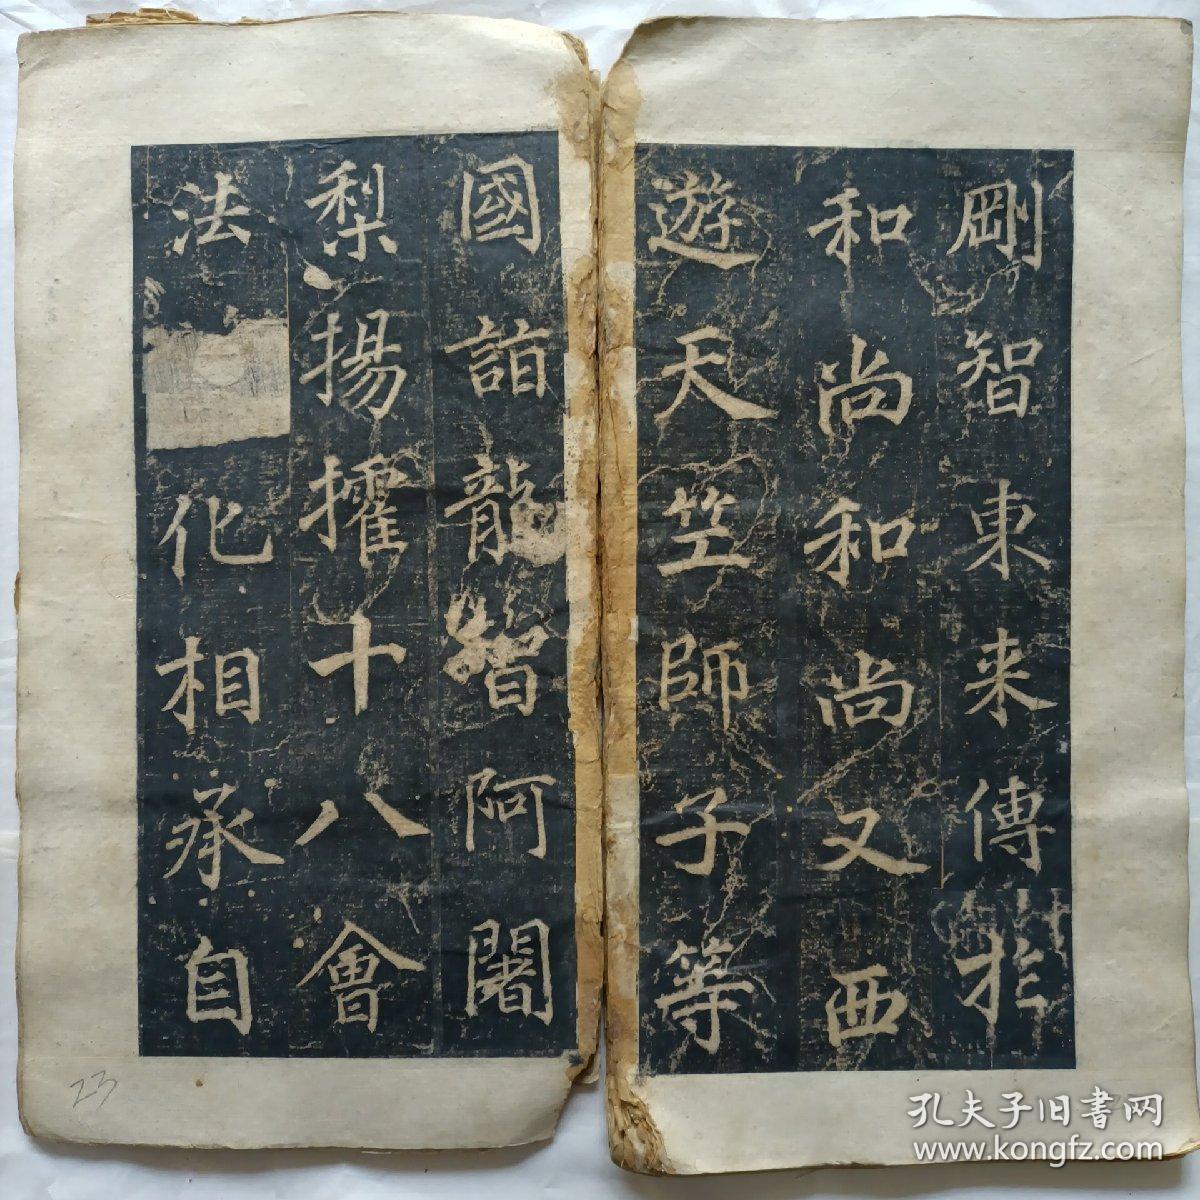 剛智東来傳於
和尚和尚又西
遊天笁師子等
國詣龍智阿闍
梨揚攉十八會
法化相承自
23
孔夫子旧書网
www.kongfz.com